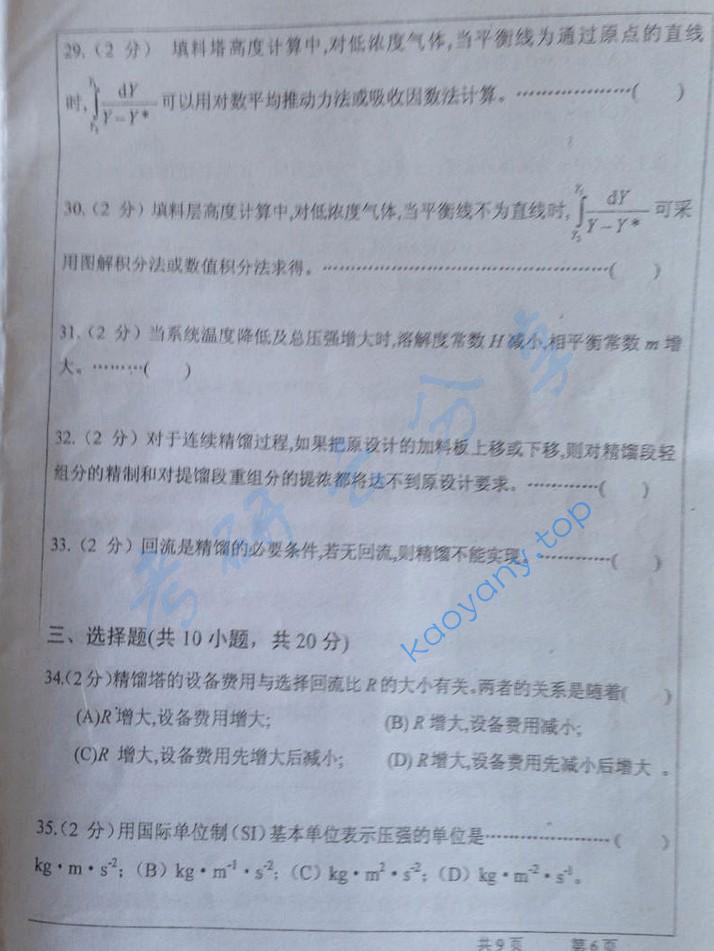 29.(2 分) 填料塔高度计算中,对低浓度气体,当平衡线为通过原点的直线
时,∫_{Y₂}^{Y₁} dY/(Y-Y*) 可以用对数平均推动力法或吸收因数法计算。………………( )
30.(2 分)填料层高度计算中,对低浓度气体,当平衡线不为直线时,∫_{Y₂}^{Y₁} dY/(Y-Y*) 可采
用图解积分法或数值积分法求得。………………………………………( )
31.(2 分)当系统温度降低及总压强增大时,溶解度常数 H 减小,相平衡常数 m 增
大。………( )
32.(2 分)对于连续精馏过程,如果把原设计的加料板上移或下移,则对精馏段轻
组分的精制和对提馏段重组分的提浓都将达不到原设计要求。…………( )
33.(2 分)回流是精馏的必要条件,若无回流,则精馏不能实现。…………( )
三、选择题(共 10 小题，共 20 分)
34.(2分)精馏塔的设备费用与选择回流比 R 的大小有关。两者的关系是随着( )
(A)R 增大,设备费用增大; (B) R 增大,设备费用减小;
(C)R 增大,设备费用先增大后减小; (D) R增大,设备费用先减小后增大 。
35.(2 分)用国际单位制(SI)基本单位表示压强的单位是…………………( )
kg·m·s⁻²;(B) kg·m⁻¹·s⁻²;(C) kg·m²·s⁻²;(D) kg·m⁻²·s⁻¹。
共 9 页 第 6 页
考研云分享
kaoyany.top